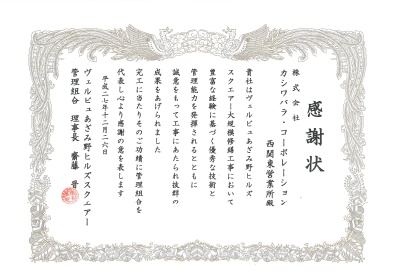 感謝状
株式会社
カシワバラ・コーポレーション
西関東営業所殿
貴社はヴェルビュあざみ野ヒルズ
スクエアー大規模修繕工事において
豊富な経験に基づく優秀な技術と
管理能力を発揮されるとともに
誠意をもって工事にあたられ抜群の
成果をあげられました
完工に当たりそのご功績に管理組合を
代表し心より感謝の意を表します
平成二七年十二月二六日
ヴェルビュあざみ野ヒルズスクエアー
管理組合 理事長 齋藤 晋